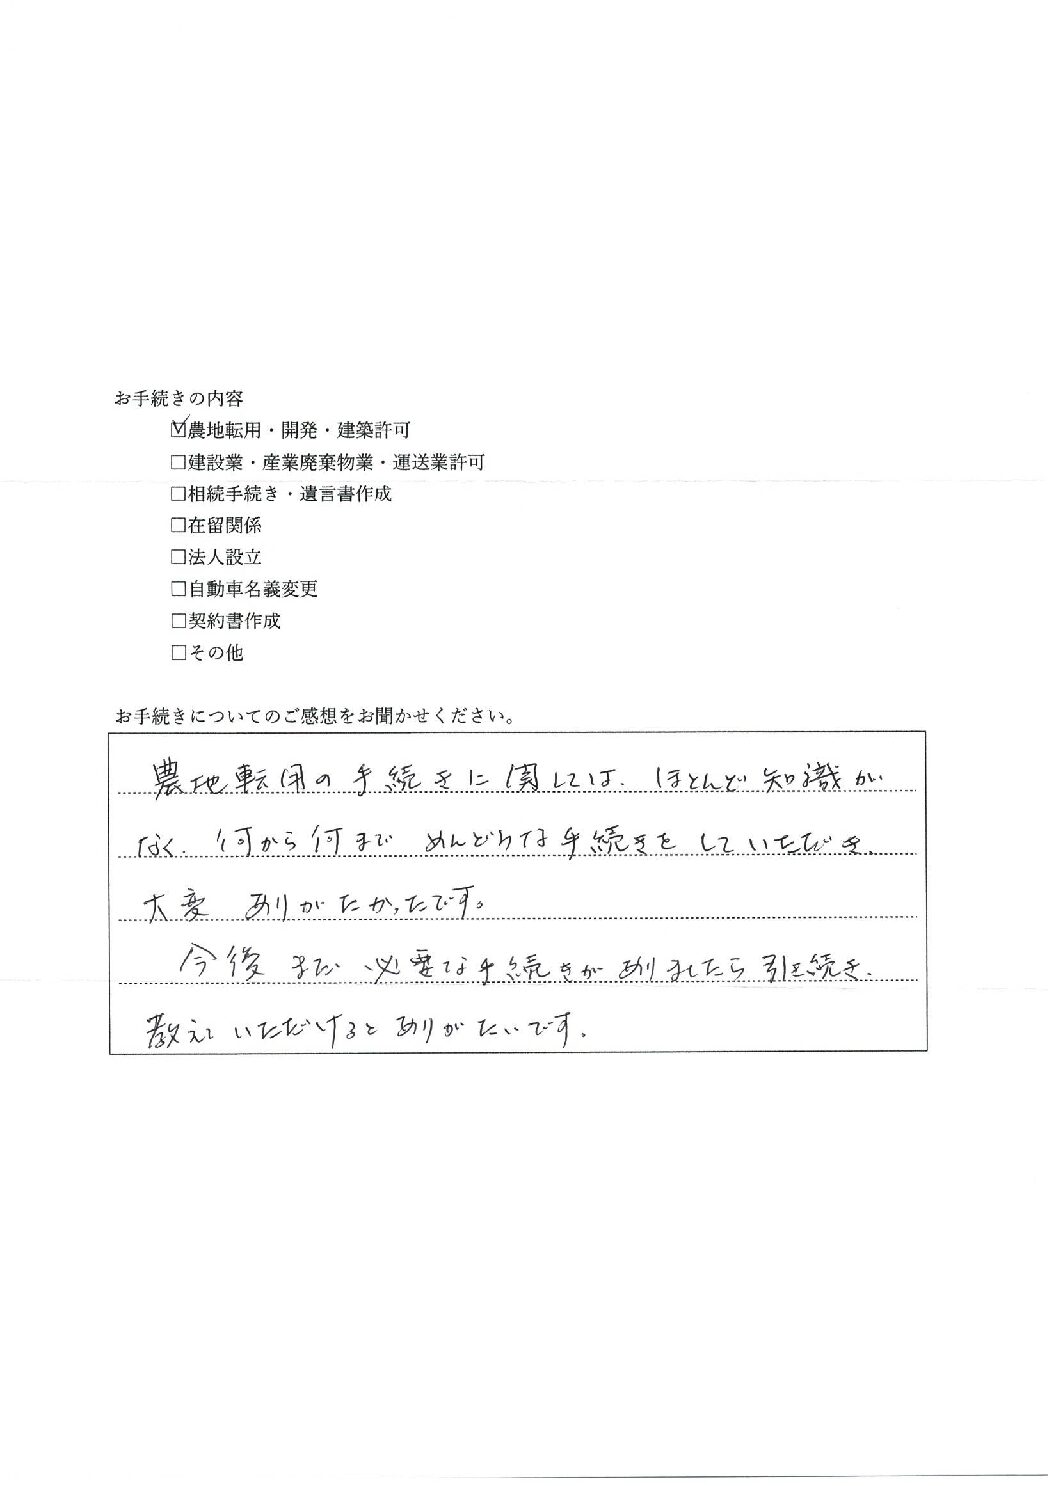 お手続きの内容
☑農地転用・開発・建築許可
□建設業・産業廃棄物業・運送業許可
□相続手続き・遺言書作成
□在留関係
□法人設立
□自動車名義変更
□契約書作成
□その他
お手続きについてのご感想をお聞かせください。
農地転用の手続きに関しては、ほとんど知識が
なく、何から何まで めんどうな手続きを していただき、
大変 ありがたかったです。
今後 また 必要な手続きがありましたら 引き続き、
教えていただけるとありがたいです。